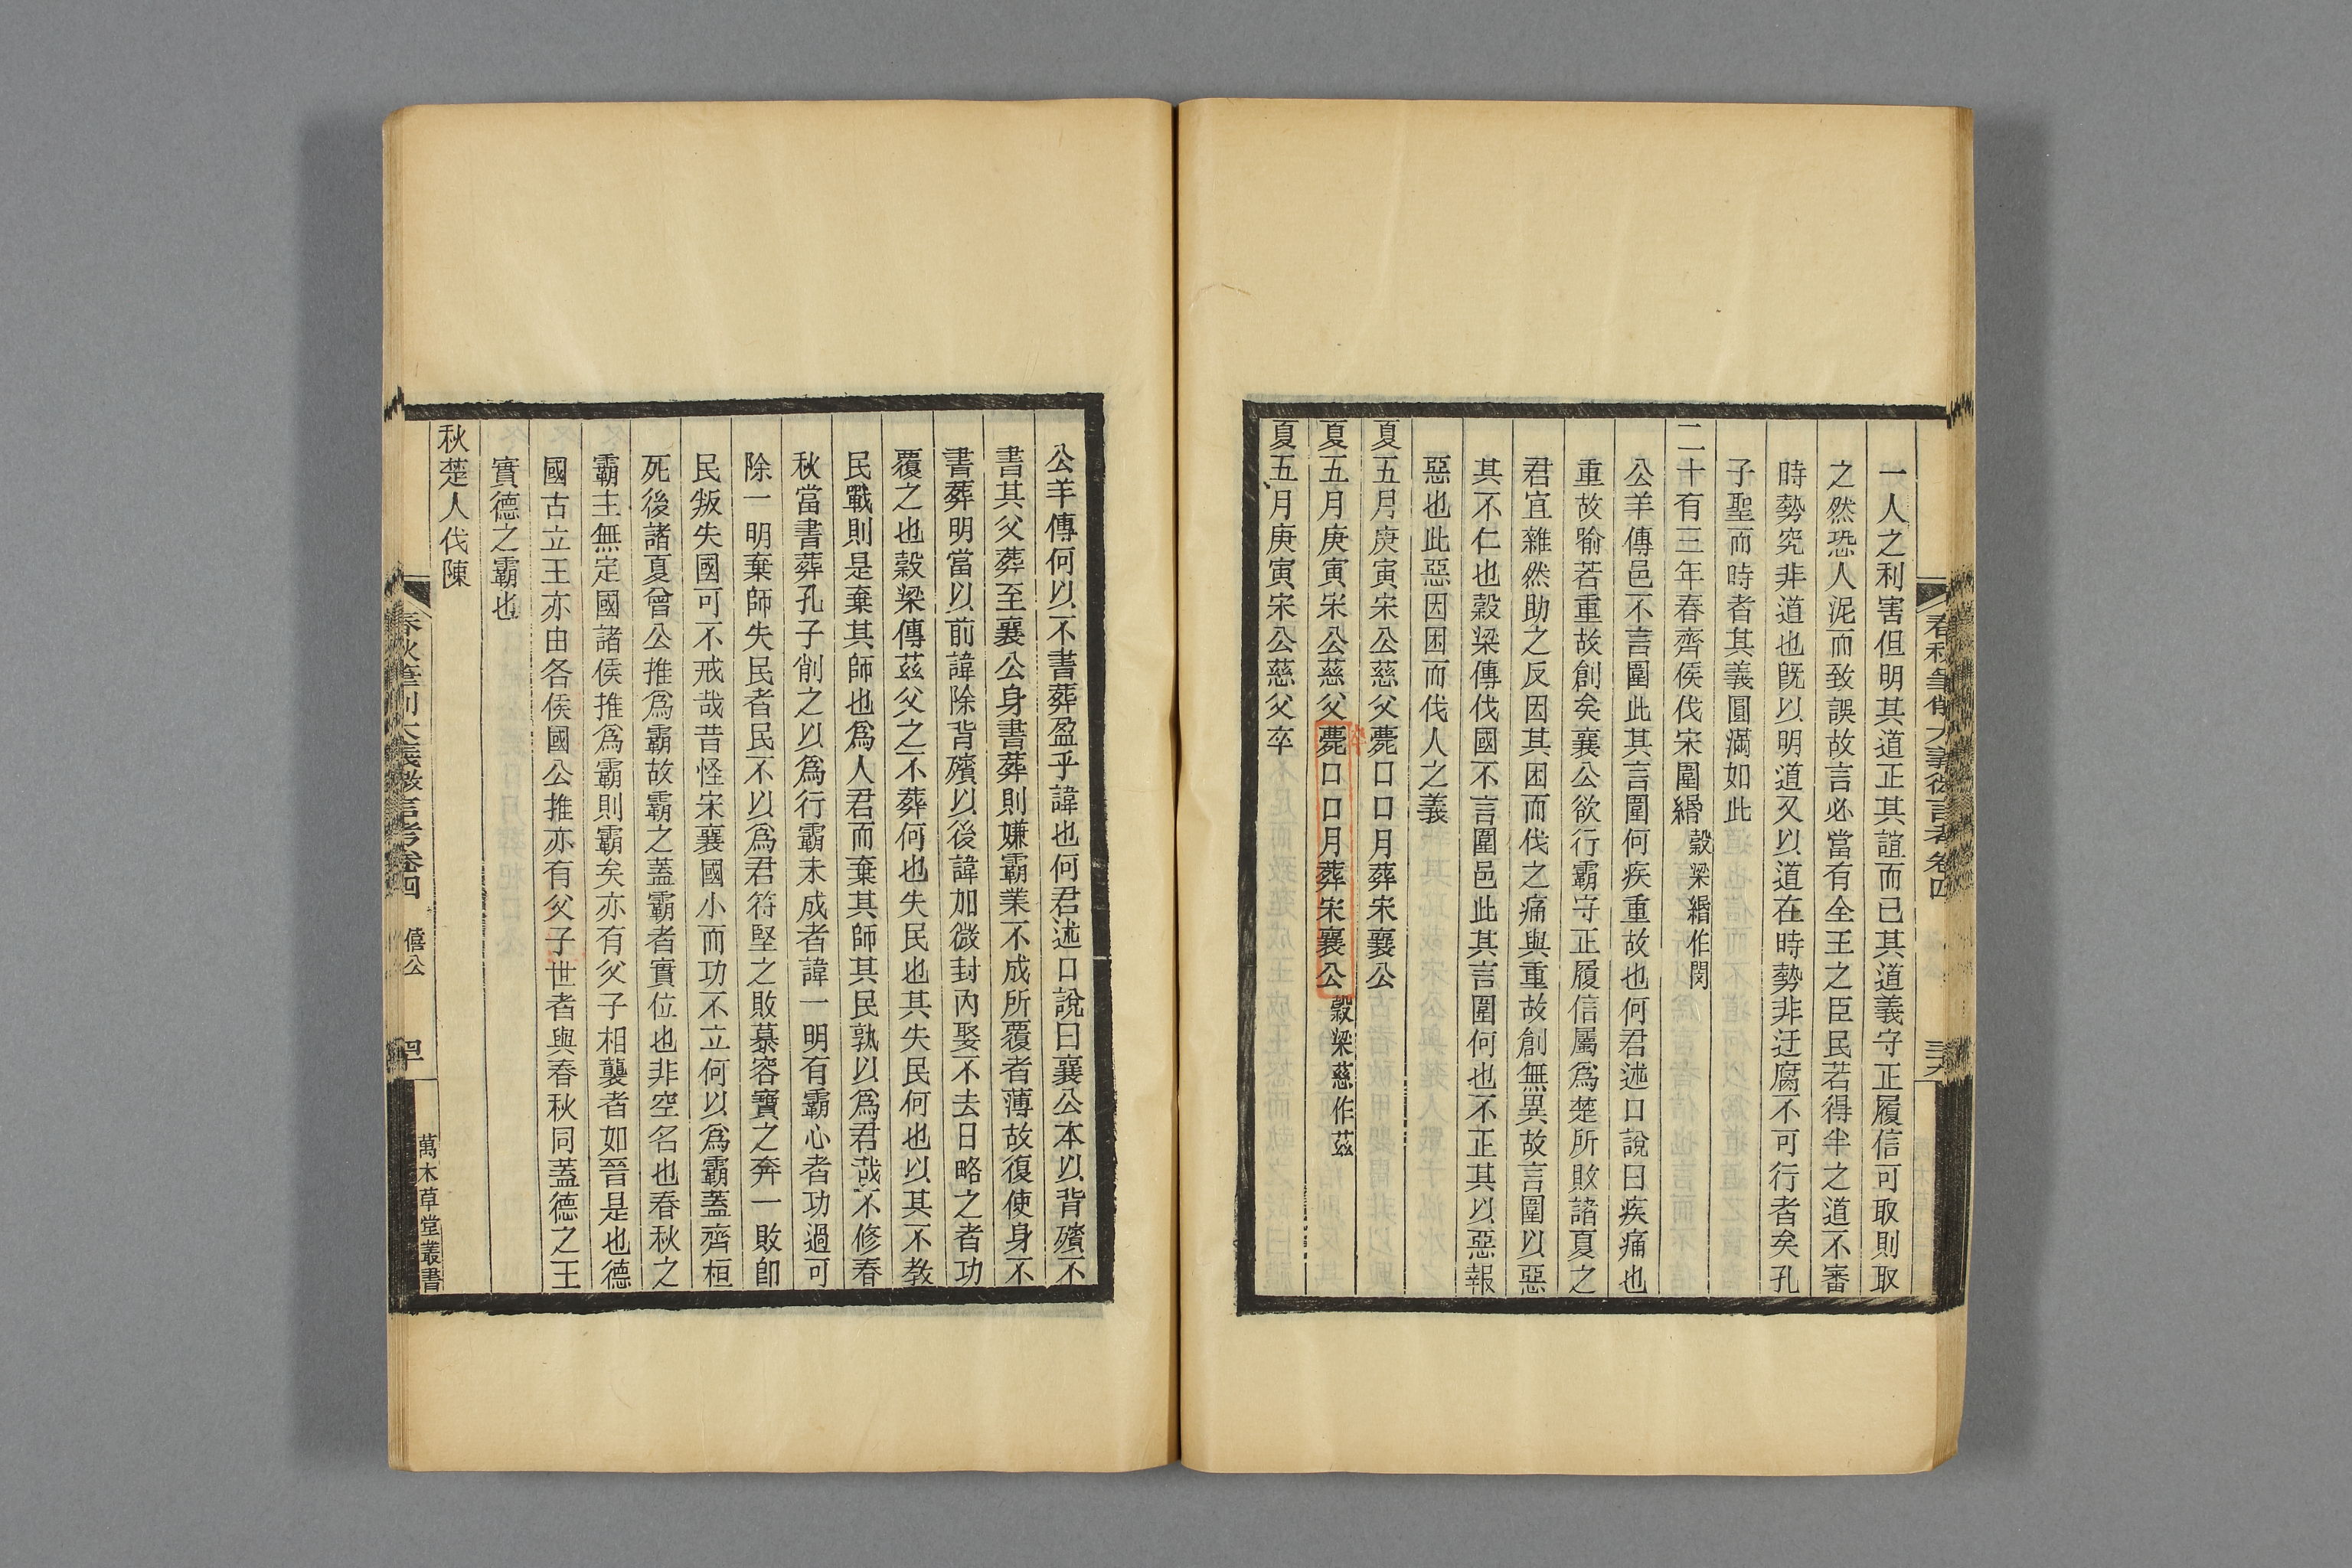 春秋筆削大義微言考卷四
一人之利害但明其道正其誼而已其道義守正履信可取則取
之然恐人泥而致誤故言必當有全王之臣民若得半之道不審
時勢究非道也既以明道又以道在時勢非迂腐不可行者矣孔
子聖而時者其義圓滿如此
二十有三年春齊侯伐宋圍緡穀梁緡作閔
公羊傳邑不言圍此其言圍何疾重故也何君述口說曰疾痛也
重故喻若重故創矣襄公欲行霸守正履信屬爲楚所敗諸夏之
君宜雜然助之反因其困而伐之痛與重故創無異故言圍以惡
其不仁也穀梁傳伐國不言圍邑此其言圍何也不正其以惡報
惡也此惡因困而伐人之義
夏五月庚寅宋公慈父薨口口月葬宋襄公
夏五月庚寅宋公慈父薨口口月葬宋襄公穀梁慈作茲
卒
夏五月庚寅宋公慈父卒
公羊傳何以不書葬盈乎諱也何君述口說曰襄公本以背殯不
書其父葬至襄公身書葬則嫌霸業不成所覆者薄故復使身不
書葬明當以前諱除背殯以後諱加微封內娶不去日略之者功
覆之也穀梁傳茲父之不葬何也失民也其失民何也以其不教
民戰則是棄其師也爲人君而棄其師其民孰以爲君哉不修春
秋當書葬孔子削之以爲行霸未成者諱一明有霸心者功過可
除一明棄師失民者民不以爲君符堅之敗慕容寶之奔一敗卽
民叛失國可不戒哉昔怪宋襄國小而功不立何以爲霸蓋齊桓
死後諸夏曾公推爲霸故霸之蓋霸者實位也非空名也春秋之
霸主無定國諸侯推爲霸則霸矣亦有父子相襲者如晉是也德
國古立王亦由各侯國公推亦有父子世者與春秋同蓋德之王
實德之霸也
秋楚人伐陳
春秋筆削大義微言考卷四 僖公
萬木草堂叢書